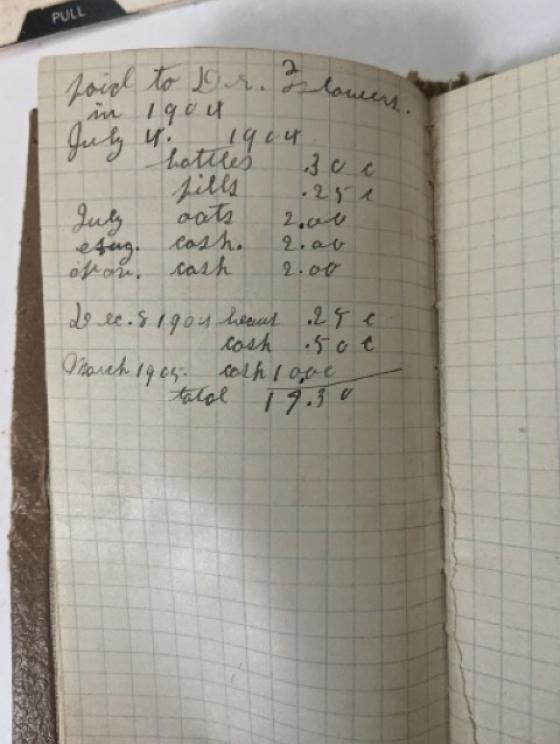 PULL
paid to Dr. Flowers.
in 1904
July 4. 1904
bottles .30 c
pills .25 c
July oats 2.00
Aug. cash. 2.00
cash 2.00
Dec. 8 1904 .25 c
cash .50 c
March 1905. cash 10.00
total 17.30